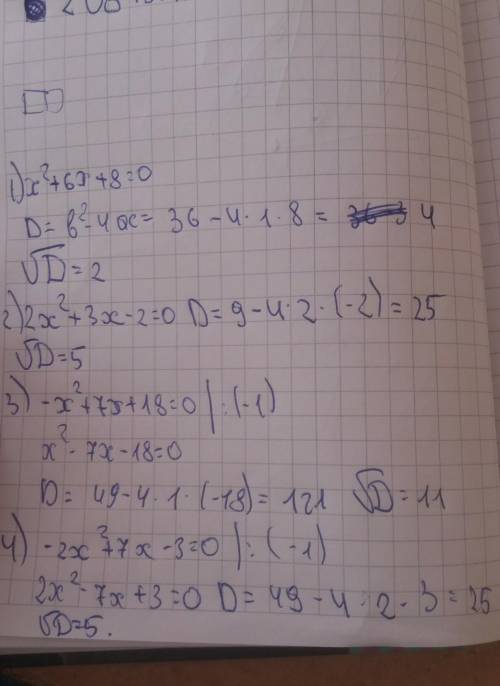 1) x²+6x+8=0
D= b²-4ac= 36-4·1·8= 4
√D=2
2) 2x²+3x-2=0 D=9-4·2·(-2)=25
√D=5
3) -x²+7x+18=0 | :(-1)
x²-7x-18=0
D= 49-4·1·(-18)= 121 √D=11
4) -2x²+7x-3=0 | :(-1)
2x²-7x+3=0 D=49-4·2·3=25
√D=5.